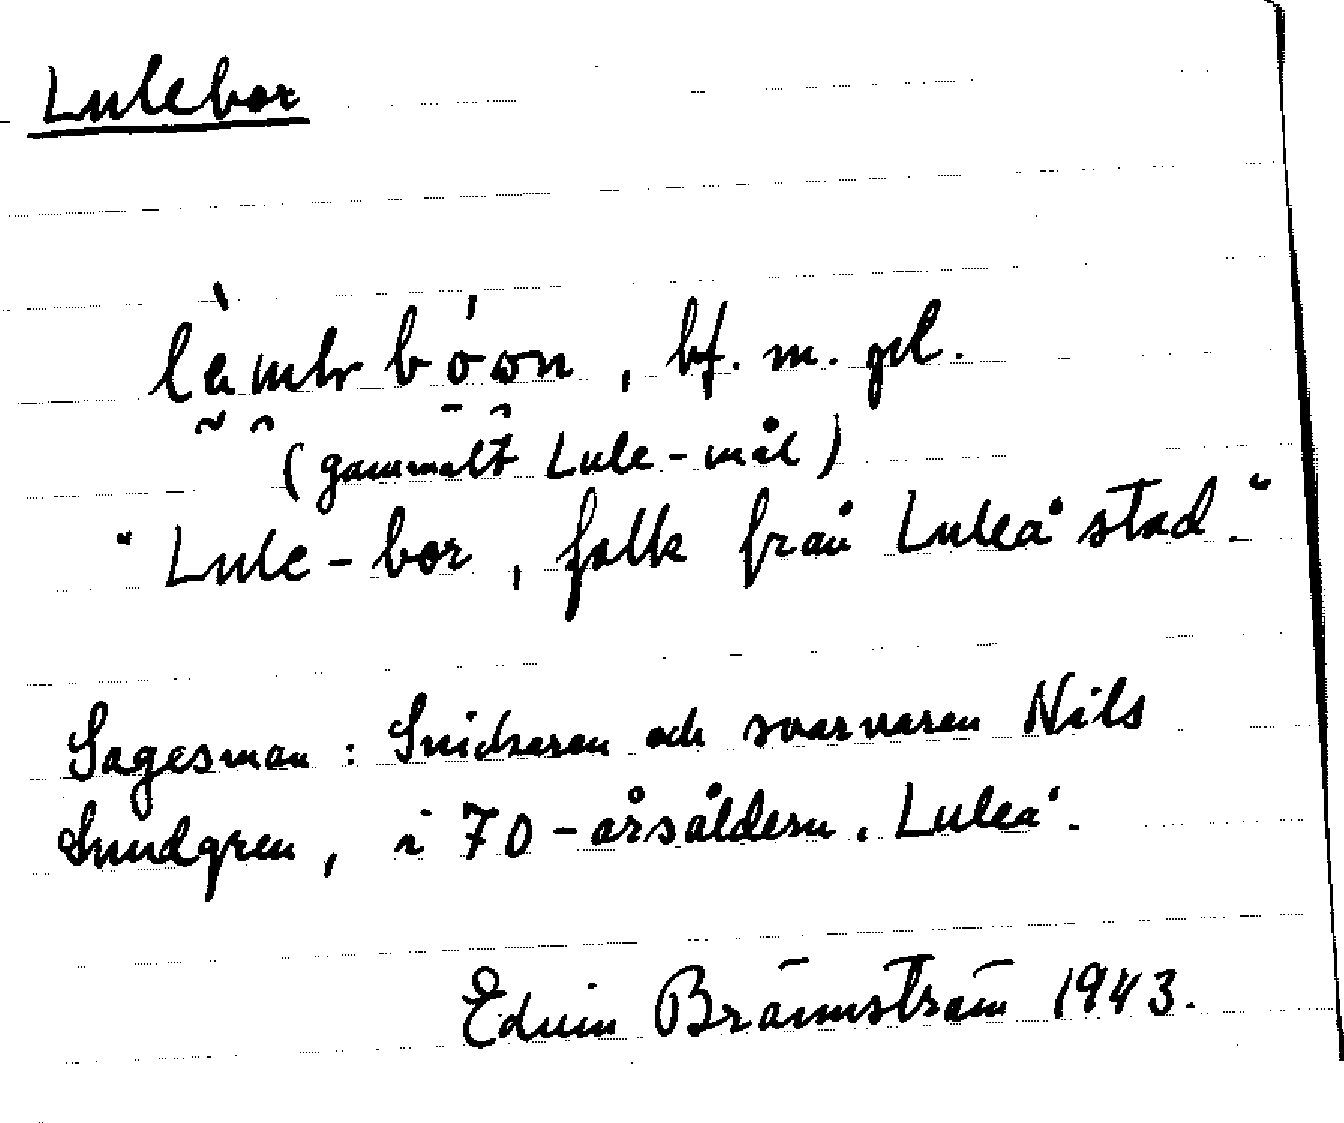 Lulebor
bf. m. pl.
(gammalt Lule-mål)
"Lule-bor, folk från Luleå stad."
Sagesman: Snickaren och svarvaren Nils
Sundgren, i 70-årsåldern. Luleå.
Edvin Brännström 1943.